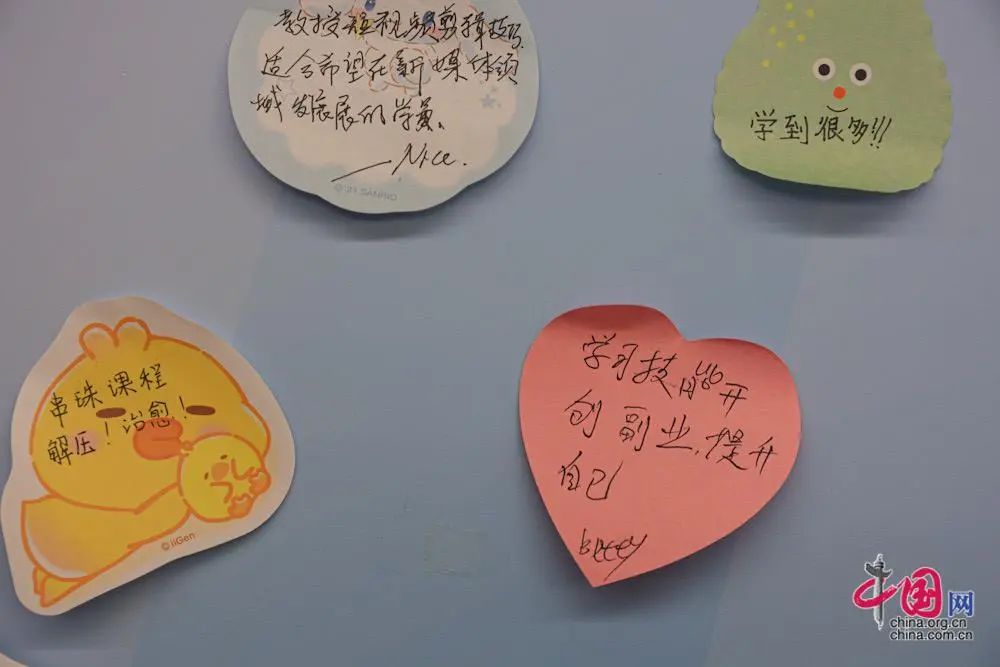 教授短视频剪辑技巧.
适合希望在新媒体领
域发展展的学员。
—Nice.
© 'JM SANRIO
学到很多!!!
串珠课程
解压！治愈！
©liGen
学习技能开
创副业,提升
自己
betty
中国网
china.org.cn
china.com.cn